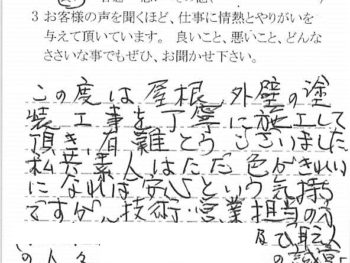 3 お客様の声を聞くほど、仕事に情熱とやりがいを
与えて頂いています。 良いこと、悪いこと、どんな
ささいな事でもぜひ、お聞かせ下さい。
この度は屋根、外壁の塗
装工事を丁寧に施工して
頂き、有難とうございました
私共素人はただ色がきれい
になれば安心という気持ち
ですが、技術・営業担当の方
及び職人
の人々